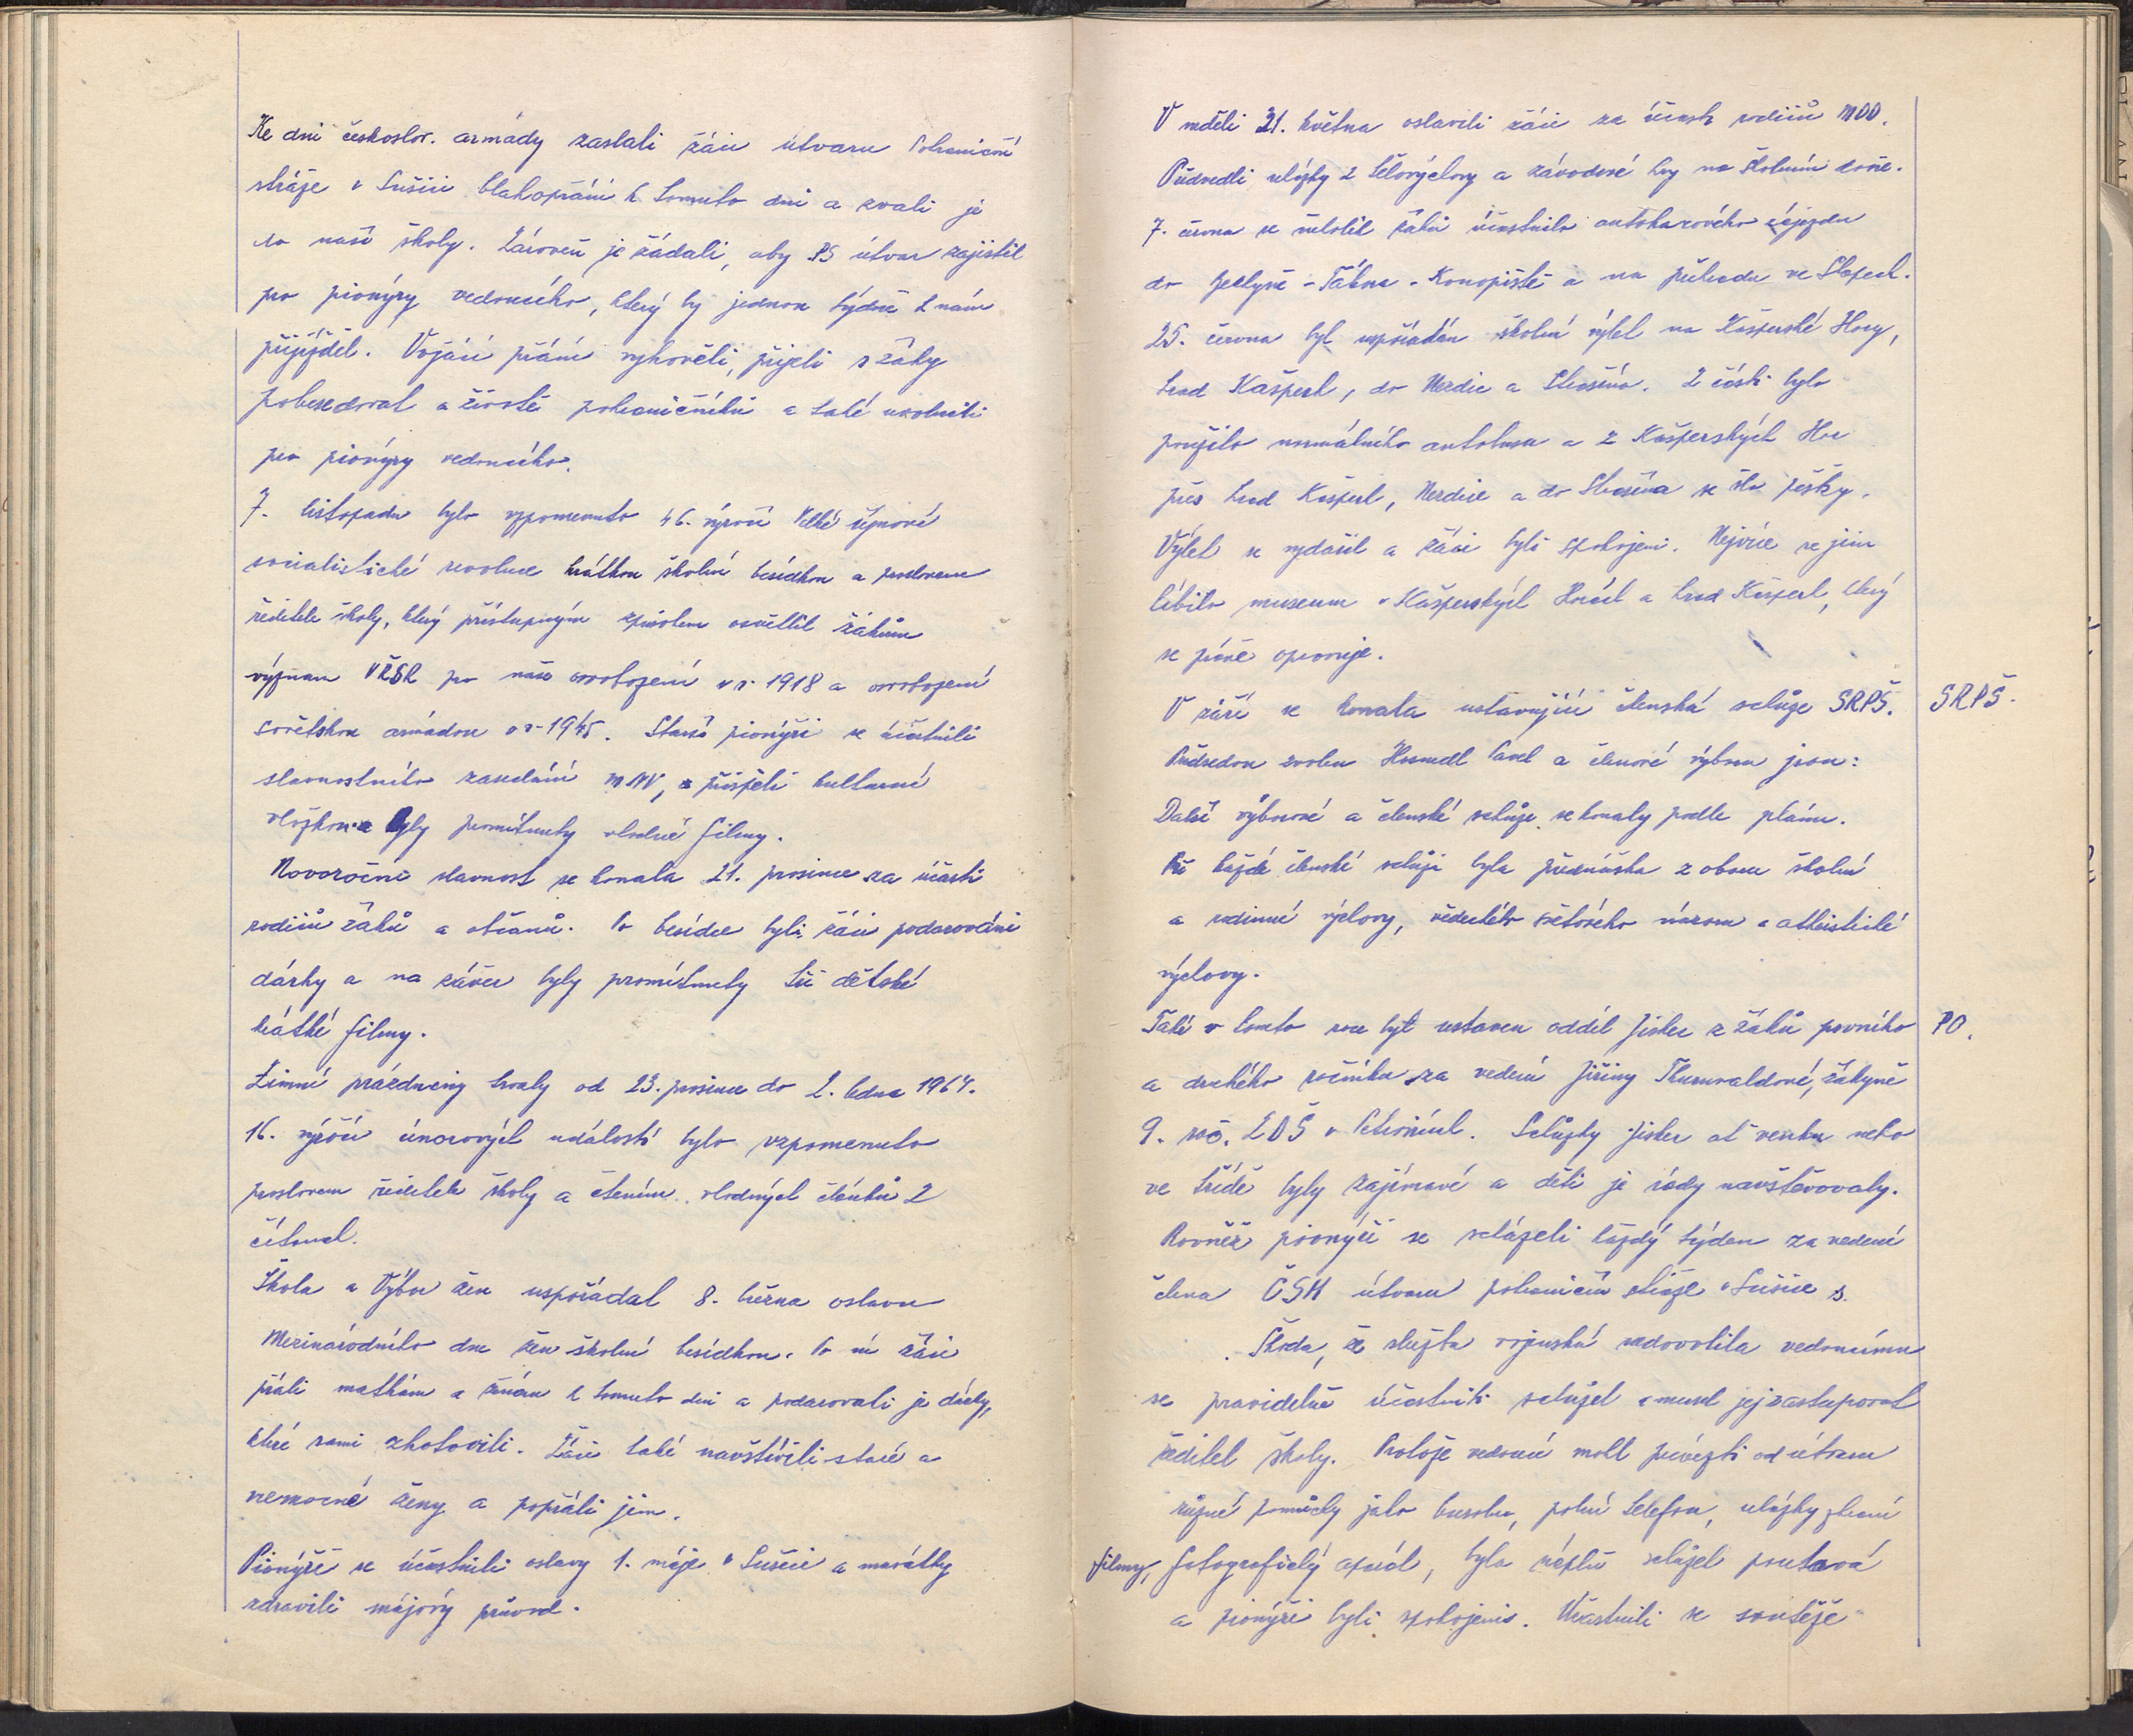 Ke dni českoslov. armády zaslali žáci útvaru Pohraniční
stráže v Sušici blahopřání k tomuto dni a zvali je
do naší školy. Zároveň je žádali, aby PS útvar zajistil
pro pionýry vedoucího, který by jednou týdně k nám
přijížděl. Vojáci přání vyhověli, přijeli s žáky
pobesedovat o životě pohraničníků a také uvolnili
pro pionýry vedoucího.
7. listopadu bylo vzpomenuto 46. výročí Velké říjnové
socialistické revoluce krátkou školní besídkou a proslovem
ředitele školy, který přístupným způsobem osvětlil žákům
význam VŘSR pro naše osvobození v r. 1918 a osvobození
sovětskou armádou v r. 1945. Starší pionýři se účastnili
slavnostního zasedání MNV, přispěli kulturní
vložkou a byly promítnuty vhodné filmy.
Novoroční slavnost se konala 21. prosince za účasti
rodičů žáků a občanů. Po besídce byli žáci podarováni
dárky a na závěr byly promítnuty tři dětské
krátké filmy.
Zimní prázdniny trvaly od 23. prosince do 2. ledna 1964.
16. výročí únorových událostí bylo vzpomenuto
proslovem ředitele školy a čtením vhodných článků z
čítanek.
Škola a Výbor žen uspořádal 8. března oslavu
Mezinárodního dne žen školní besídkou. Po ní žáci
přáli matkám a ženám k tomuto dni a podarovali je dárky,
které sami zhotovili. Žáci také navštívili staré a
nemocné ženy a popřáli jim.
Pionýři se účastnili oslavy 1. máje v Sušici a mávátky
zdravili májový průvod.
V neděli 31. května oslavili žáci za účasti rodičů MDD.
Předvedli ukázky z tělovýchovy a závodivé hry na školním dvoře.
7. června se několik žáků účastnilo autokarového zájezdu
do Ječlyně - Tábra - Konopiště a na přehradu ve Slapech.
25. června byl uspořádán školní výlet na Kašperské Hory,
hrad Kašperk, do Nezdic a Strašína. Z části bylo
použito normálního autobusu a z Kašperských Hor
přes hrad Kašperk, Nezdice a do Strašína se šlo pěšky.
Výlet se vydařil a žáci byli spokojeni. Nejvíce se jim
líbilo museum v Kašperských Horách a hrad Kašperk, který
se právě opravuje.
V září se konala ustavující členská schůze SRPŠ. SRPŠ.
Předsedou zvolen Hosmedl Pavel a členové výboru jsou:
Další výborové a členské schůze se konaly podle plánu.
Při každé členské schůzi byla přednáška z oboru školní
a rodinné výchovy, vědeckého světového názoru a atheistické
výchovy.
Také v tomto roce byl ustaven oddíl Jisker z žáků prvního PO.
a druhého ročníku za vedení Jiřiny Thurnvaldové, žákyně
9. roč. ZDŠ v Petrovicích. Schůzky Jisker ať venku nebo
ve třídě byly zajímavé a děti je rády navštěvovaly.
Rovněž pionýři se scházeli každý týden za vedení
člena ČSM útvaru pohraniční stráže v Sušice s.
Škoda, že služba vojenská nedovolila vedoucímu
se pravidelně účastniti schůzek a musel jej zastupovat
ředitel školy. Protože vedoucí mohl přivézti od útvaru
různé pomůcky jako busolu, polní telefon, ukázky zbraní
filmy, fotografický aparát, byla náplň schůzek poutavá
a pionýři byli spokojeni. Účastnili se soutěže